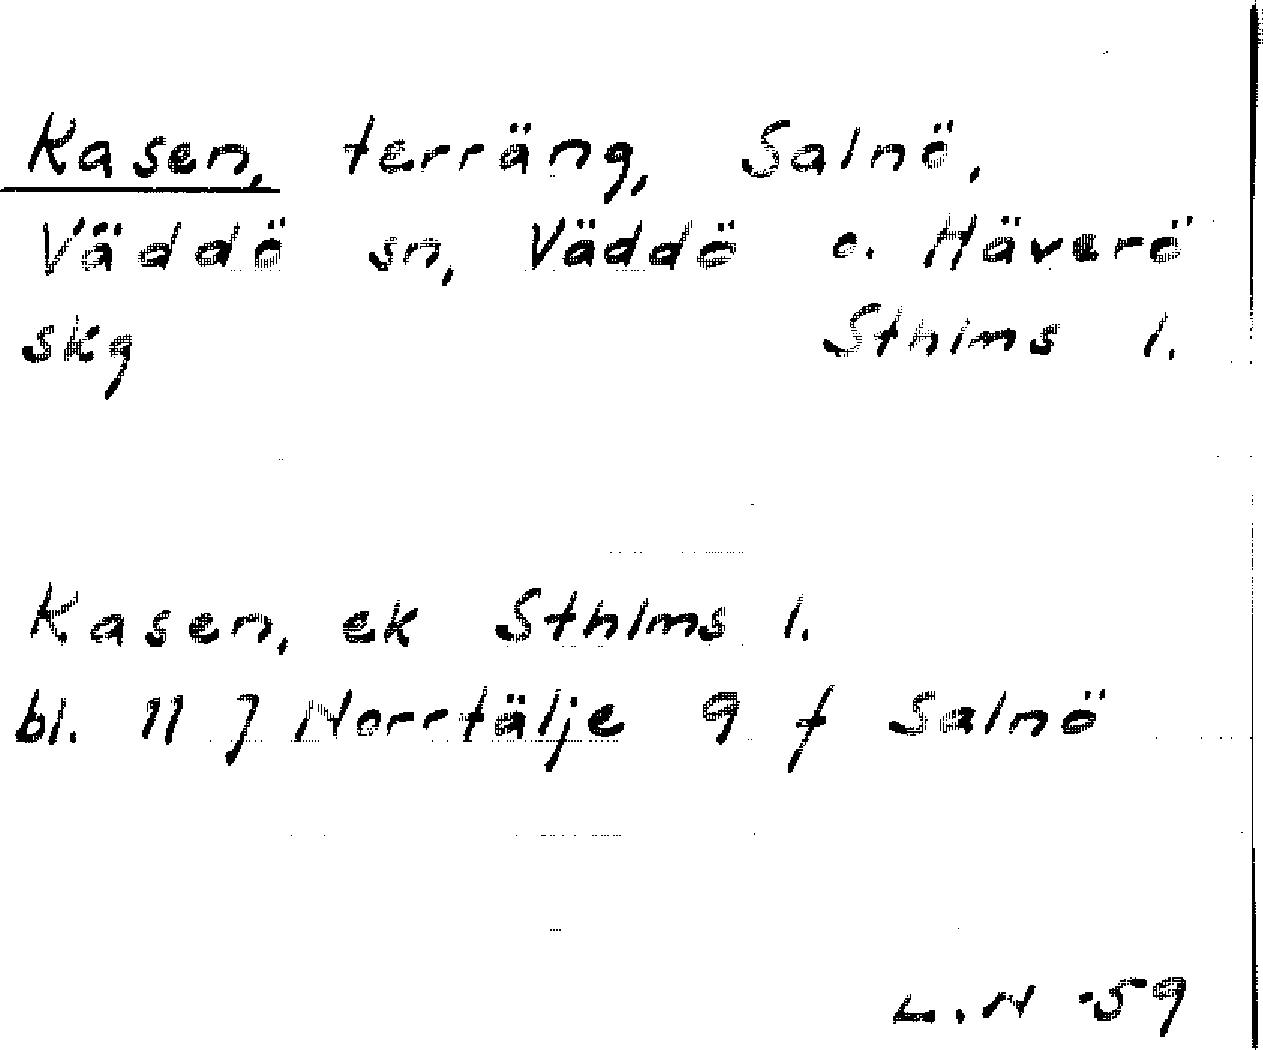 Kasen, terräng, Salnö,
Väddö sn, Väddö o. Häverö
skg Sthlms l.
Kasen, ek Sthlms l.
bl. 11 J Norrtälje 9 f Salnö
L.N -59